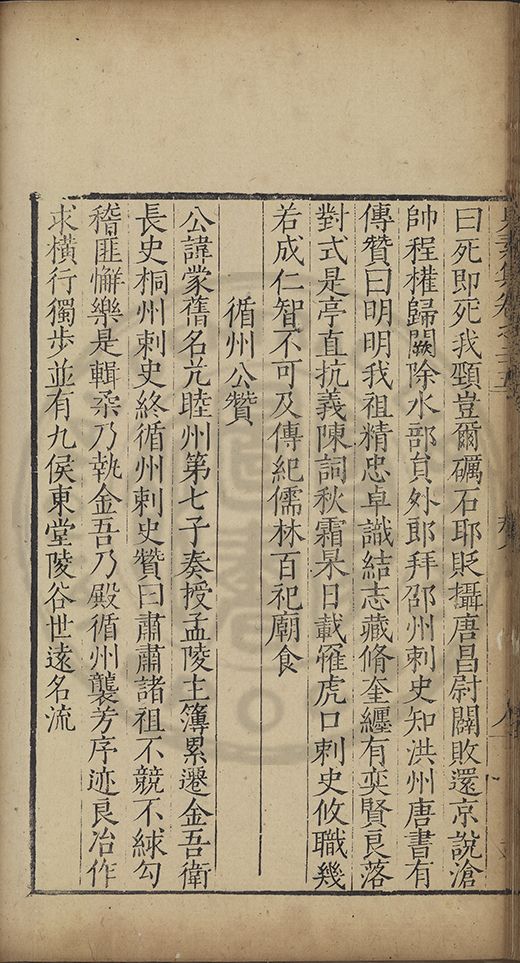 曰死即死我頸豈爾礪石耶貶攝唐昌尉闢敗還京說滄
帥程權歸闕除水部貟外郎拜邵州刺史知洪州唐書有
傳贊曰明明我祖精忠卓識結志藏脩奎纏有奕賢良落
對式是亭直抗義陳詞秋霜杲日載罹虎口刺史攸職幾
若成仁智不可及傳紀儒林百祀廟食
循州公贊
公諱蒙舊名尤睦州第七子奏授孟陵主簿累遷金吾衛
長史桐州刺史終循州刺史贊曰肅肅諸祖不競不絿勾
稽匪懈樂是輯柔乃執金吾乃殿循州襲芳序迹良冶作
求橫行獨步並有九侯東堂陵谷世遠名流